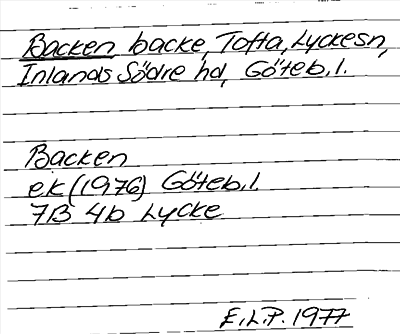 Backen backe, Tofta, Lyckesn,
Inlands Södre hd, Göteb.l.
Backen
ek (1976) Göteb.l.
7B 4b Lycke
E.L.P. 1977